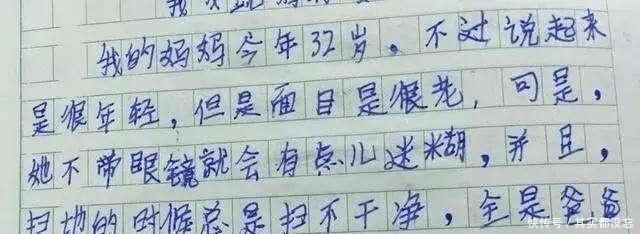 我的妈妈今年32岁，不过说起来
是很年轻，但是面目是很老，可是，
她不带眼镜就会有点儿迷糊，并且，
扫地的时候总是扫不干净，全是爸爸
快传号/其实都没忘